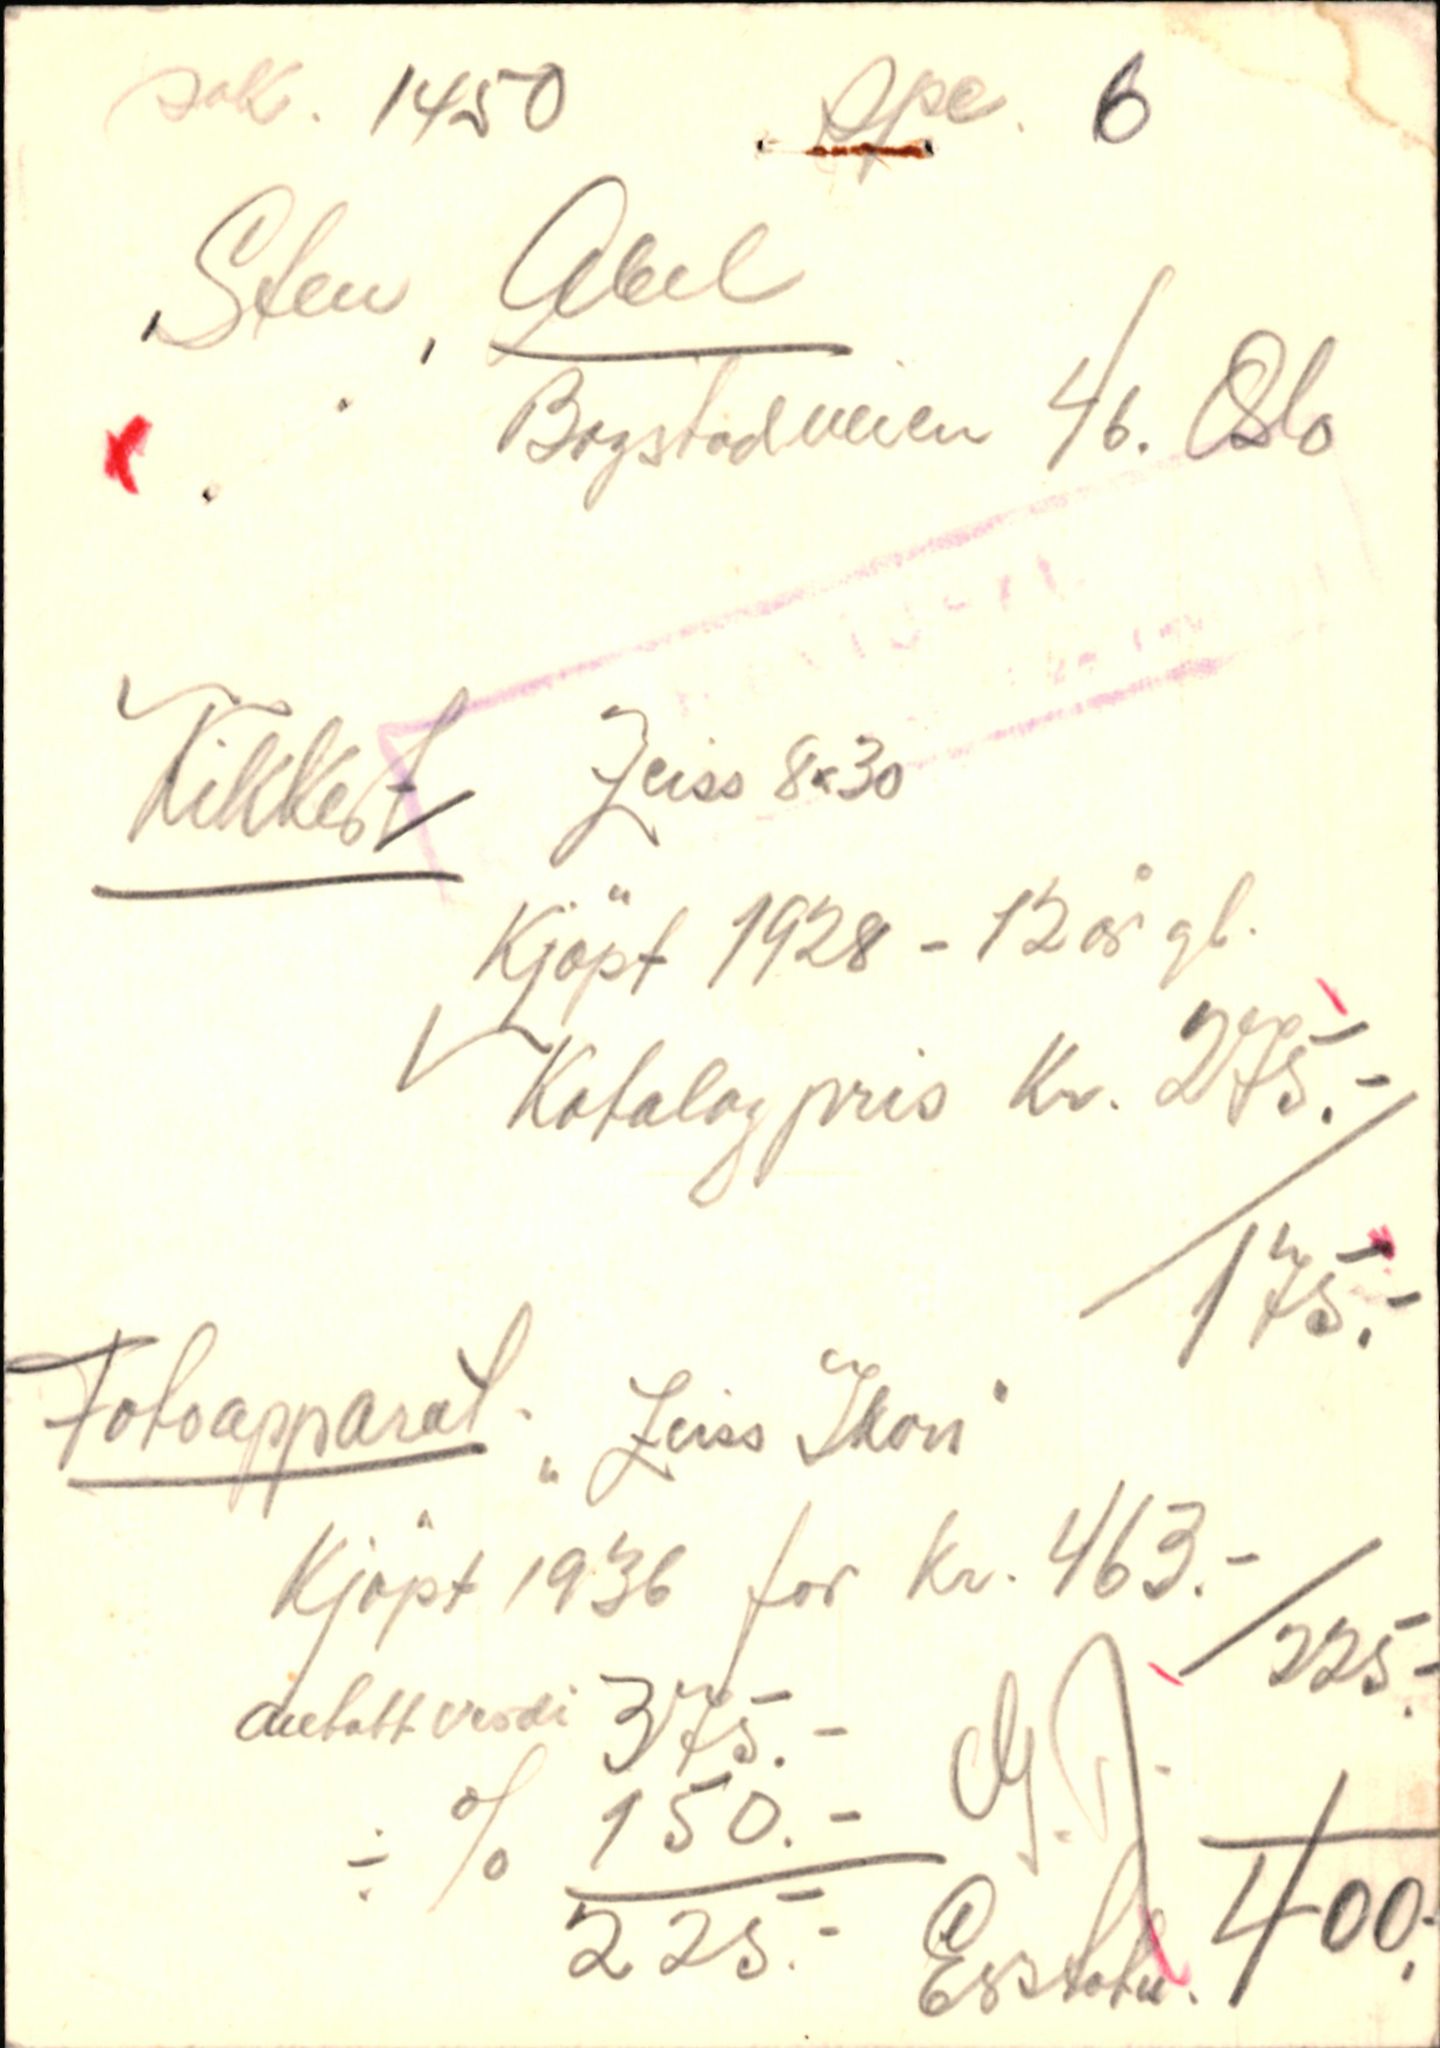 sak. 1450 spe. 6
Sten, Abel
Bogstadveien 46. Oslo
Kikkert Zeiss 8x30
Kjöpt 1928 - 12 år gl.
Katalogpris Kr. 275.-
175.-
Fotoapparat. "Zeiss Ikon"
Kjöpt 1936 for kr. 463.-
225.-
antatt verdi 375.-
÷ % 150.-
225.- Erstatn. 400.-